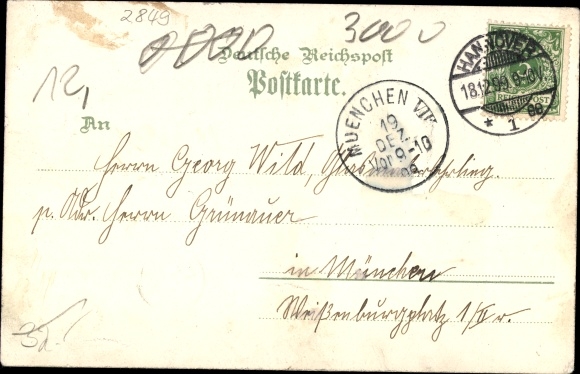 2849
3000
Deutsche Reichspost
Postkarte.
12,
An
HANNOVER
18.12.99. 9-10
* 1 gg
MUENCHEN VII
19
DEZ
Vor 9-10
99
Herrn Georg Wild,
p. Adr. Herrn Grünauer
in München
Weißenburgplatz 1/II r.